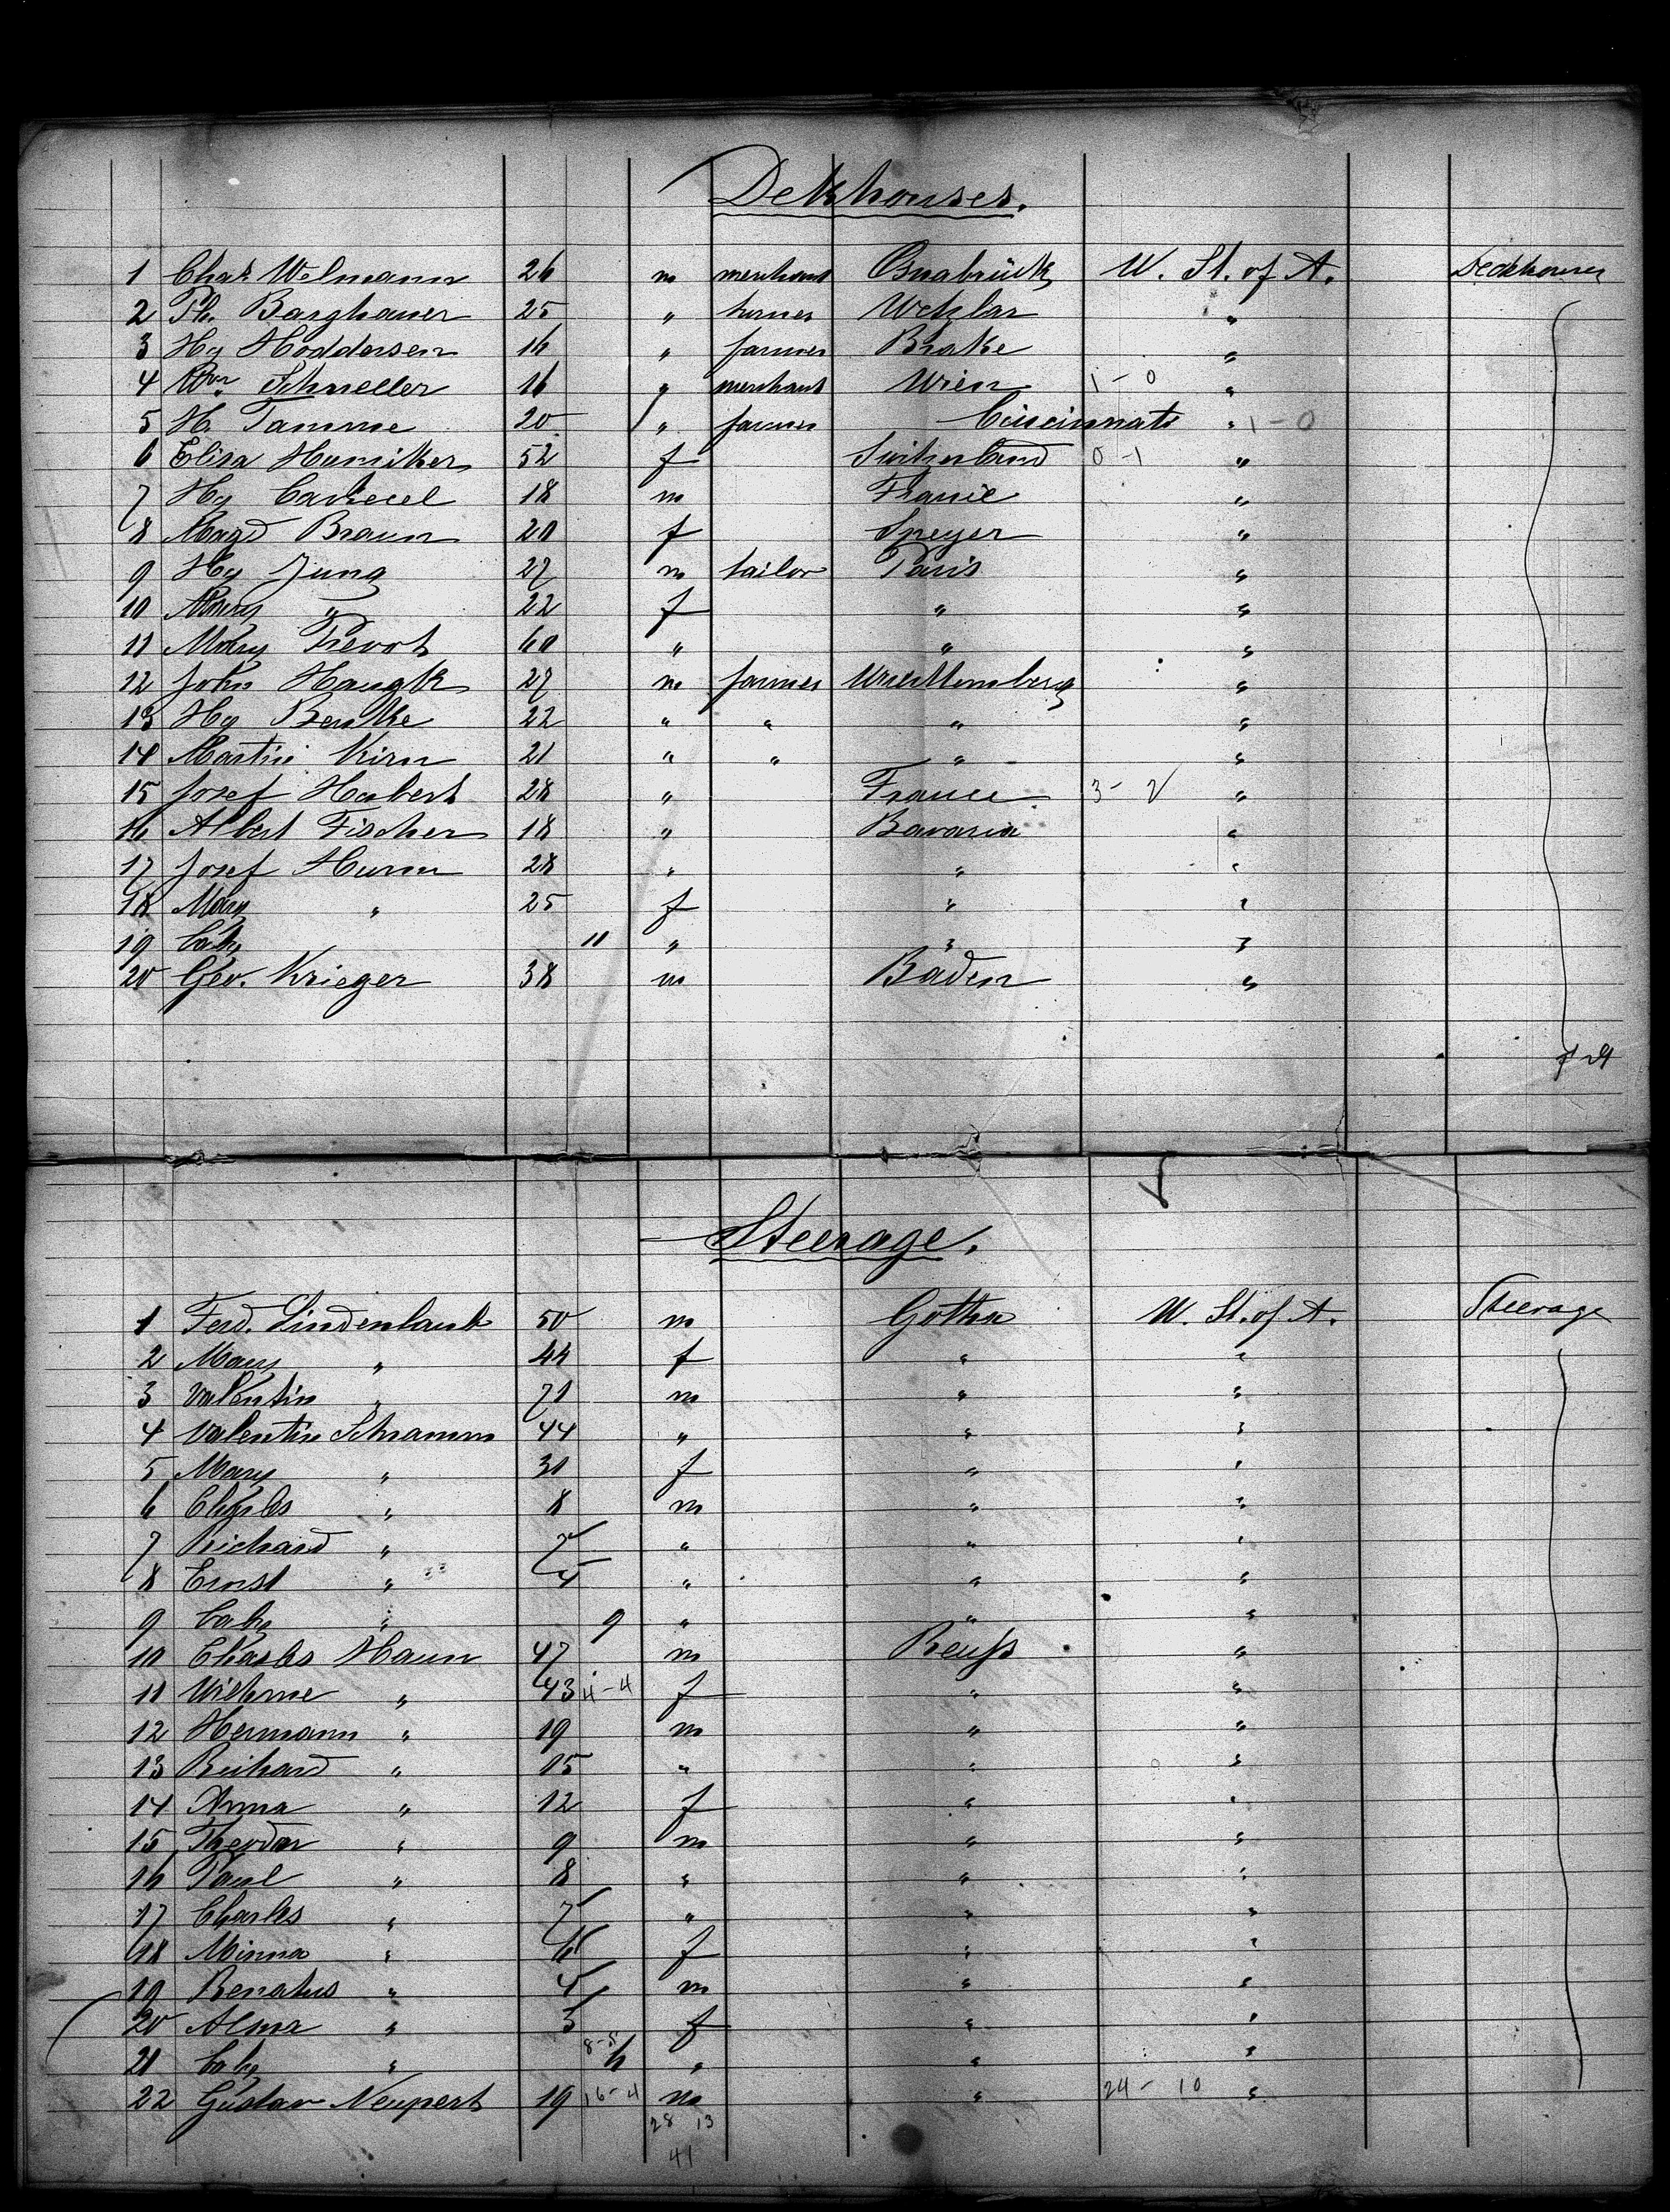 Dekhouses.
1 Chas Welmann 26 m merchant Osnabrück U. St. of A. Deckhouses
2 Ph. Barghauer 25 " turner Wetzlar "
3 Hy Hoddersen 16 " farmer Brake "
4 Wm Schmeller 16 " merchant Wien 1 - 0 "
5 H. Tamme 20 " farmer Cincinnati " 1 - 0
6 Elisa Humiker 52 f Switzerland 0 - 1 "
7 Hy 18 m France "
8 Magd Braun 20 f Speyer "
9 Hy Jung 27 m tailor Paris "
10 Mary " 22 f " "
11 Mary Prevot 60 " " "
12 John Haugk 27 m farmer Wurttemberg "
13 Hy Benthe 22 " " " "
14 Martin Kirn 21 " " " "
15 Josef Habert 28 " France 3 - 2 "
16 Albert Fischer 18 " Bavaria "
17 Josef Hurm 28 " " "
18 Mary " 25 f " "
19 baby 11 " " "
20 Geo. Krieger 38 m Baden "
Steerage.
1 Ferd. Lindenlaub 50 m Gotha U. St. of A. Steerage
2 Mary " 44 f " "
3 Valentin " 71 m " "
4 Valentin Schramm 44 " " "
5 Mary " 30 f " "
6 Charles " 8 m " "
7 Richard " 7 " " "
8 Ernst " 4 " " "
9 baby " 9 " " "
10 Charles Haun 47 m Reuß "
11 Wilhme " 43 4 - 4 f " "
12 Hermann " 19 m " "
13 Richard " 15 " " "
14 Anna " 12 f " "
15 Theodor " 9 m " "
16 Paul " 8 " " "
17 Charles " 7 " " "
18 Minna " 6 f " "
19 Renatus " 4 m " "
20 Alma " 3 f " "
21 baby " 8 - 5 6 " " "
22 Gustav Neupert 19 16 - 4 m " 24 - 10 "
28 13
41